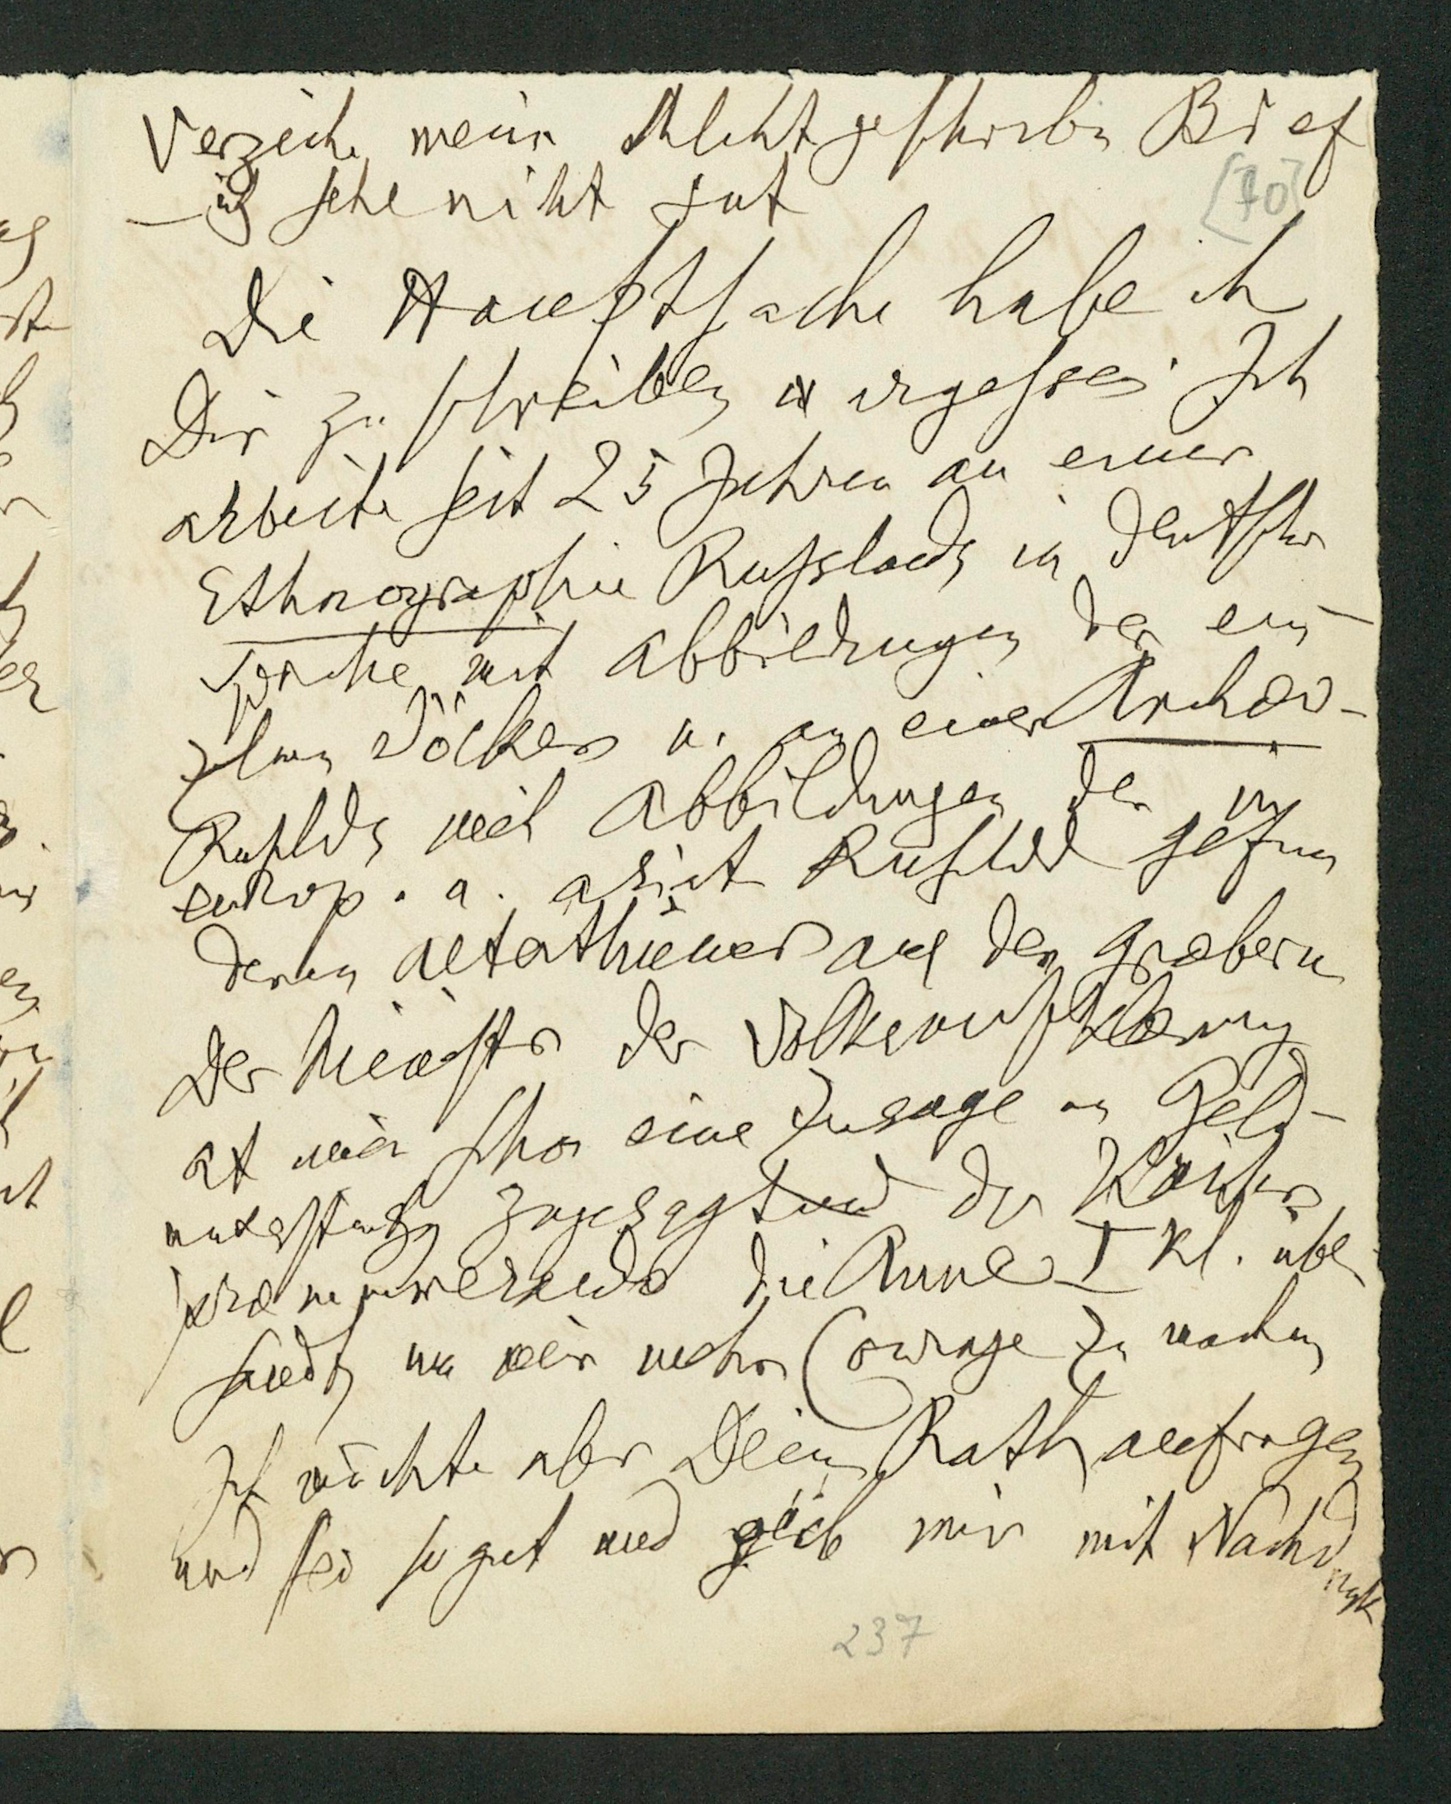 Verzeihe meinen schlecht geschriebn Brief
— ich sehe nicht gut
[70]
Die Hauptsache habe ich
Dir zu schreiben vergessen Ich
arbeite seit 25 Jahren an einer
Ethnographie Russlands in deutscher
Sprache mit Abbildungen der ein-
zelnen Völker u. an einer Archæo-
Russlds mit Abbildungen der in
europ. u. asiat Russld gefun
denen Alterthümer aus den Gräbern
Der Minister der Volksaufklärung
at mir schon eine Zusage an Geld-
unterstützg zugesagt und der Kaiser
die Anne I Kl. über
sandt um mir mehr Courage zu machen
Ich möchte aber Deinen Rath anfragen
und sei so gut und gieb mir mit Nachd
ruck
237